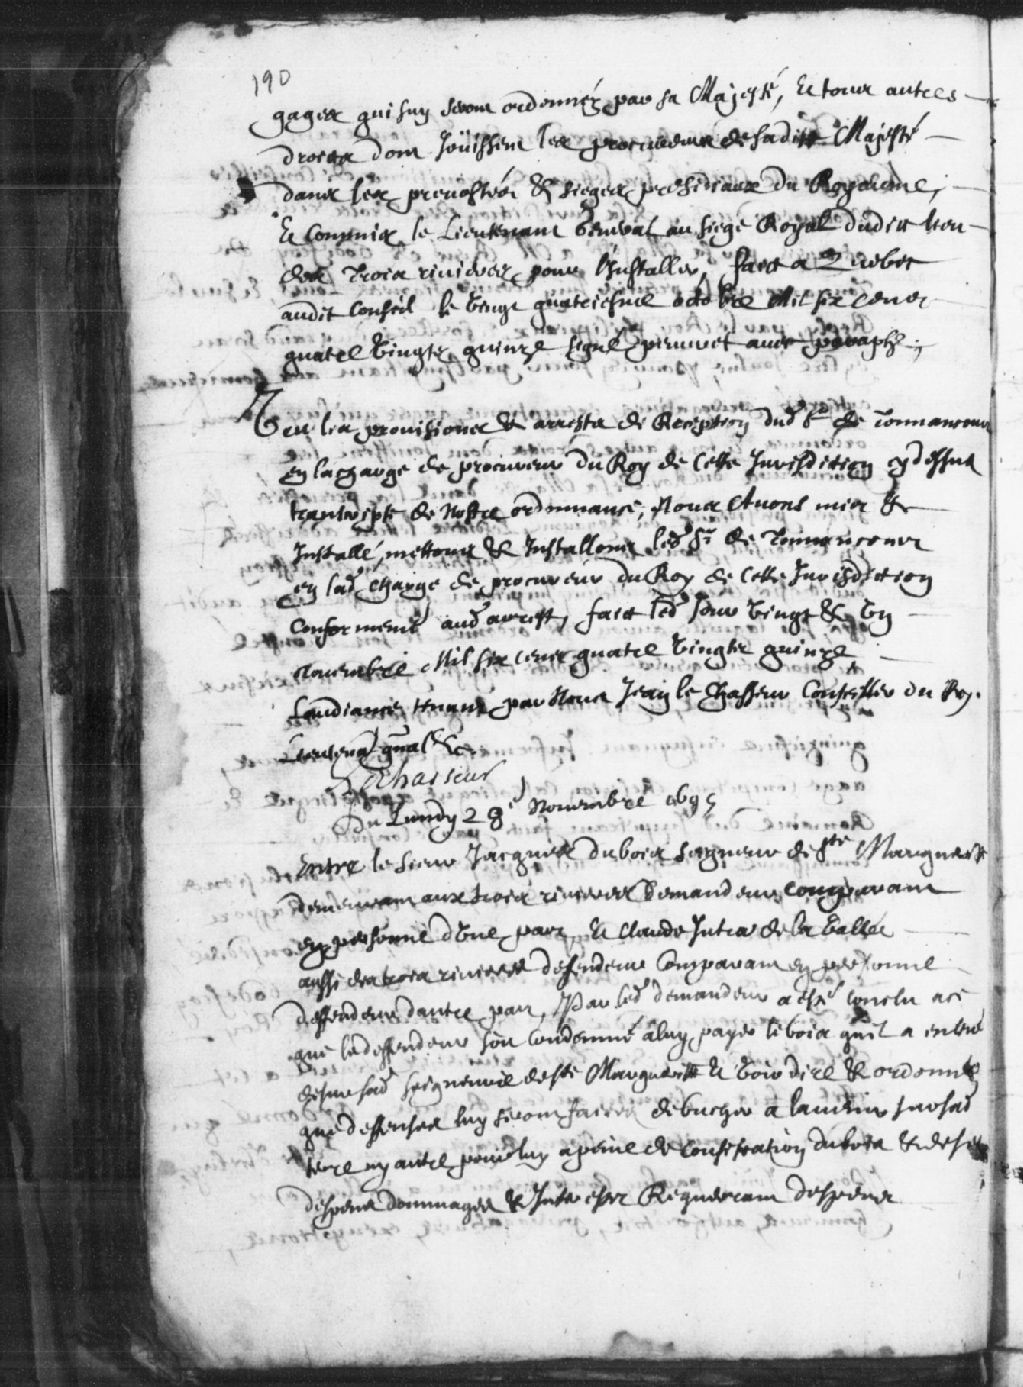 190
gages qui luy seront ordonnéz par sa Majesté, Et tous autres
droits dont Jouissent les procureurs de sadite Majesté
dans les prevostéz & sieges presidiaux du Royaume,
Et Commis le Lieutenant General au siege Royal dudit lieu
des Trois rivieres pour l'Installer, fait a Quebec
audit Conseil le vingt quatriesme octobre Mil six cent
quatre vingts quinze signé peuvret avec paraphe;
Veu les provisions & arrests de Reception dud Sr de Tonnancour
en la charge de procureur du Roy de Cette Jurisdiction cy dessus
transcripts de Nostre ordonnance, Nous Avons mis &
Installé, mettons & Installons led Sr de Tonnancour
en lad charge de procureur du Roy de Cette Jurisdiction
Conformemt aud arrest, fait led jour vingt & un
Novembre Mil six cent quatre vingts quinze
Laudiance tenant par Nous Jean le Chasseur Conseiller du Roy
Lieutenat gnal &c
Lechasseur
Du Lundy 28e Novembre 1695
Entre le sieur Jacques dubois seigneur de Ste Marguerite
demeurant aux trois rivieres Demandeur Comparant
en personne d'une part, Et Claude Jutras de la Vallee
aussi des trois rivieres deffendeur Comparant en personne
deffendeur dautre part, Par led demandeur a esté conclu ace
que led deffendeur soit Condamné a luy payer le bois quil a enlevé
dessus sad seigneurie de Ste Marguerite Et voir dire & ordonner
que deffenses luy seront faites de bucher a lavenir sur sad
terre ny autre pour luy a peine de Confiscation du bois & de
despens dommages & Interests Requerant despens